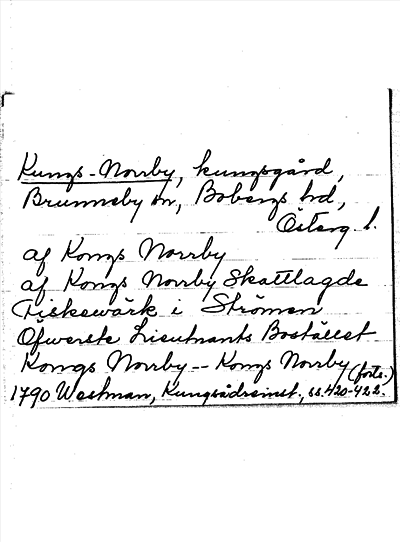 Kungs-Norrby, kungsgård,
Brunneby sn, Bobergs hd,
Österg. l.
af Kongs Norrby
af Kongs Norrby Skattlagde
Fiskewärk i Strömen
Öfwerste Lieutnants Bostället
Kongs Norrby -- Kongs Norrby (forts.)
1790 Westman, Kungsådreinst., ss. 420-422.